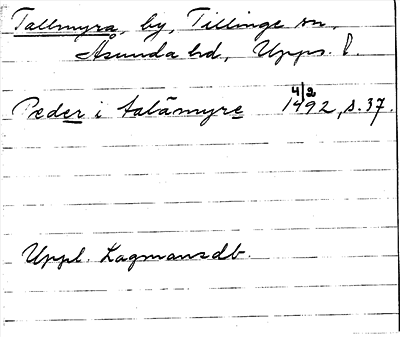 Tallmyra, by, Tillinge sn,
Åsunda hd, Upps. l.
Peder i talåmyre 4/2 1492, s. 37.
Uppl. Lagmansdb.